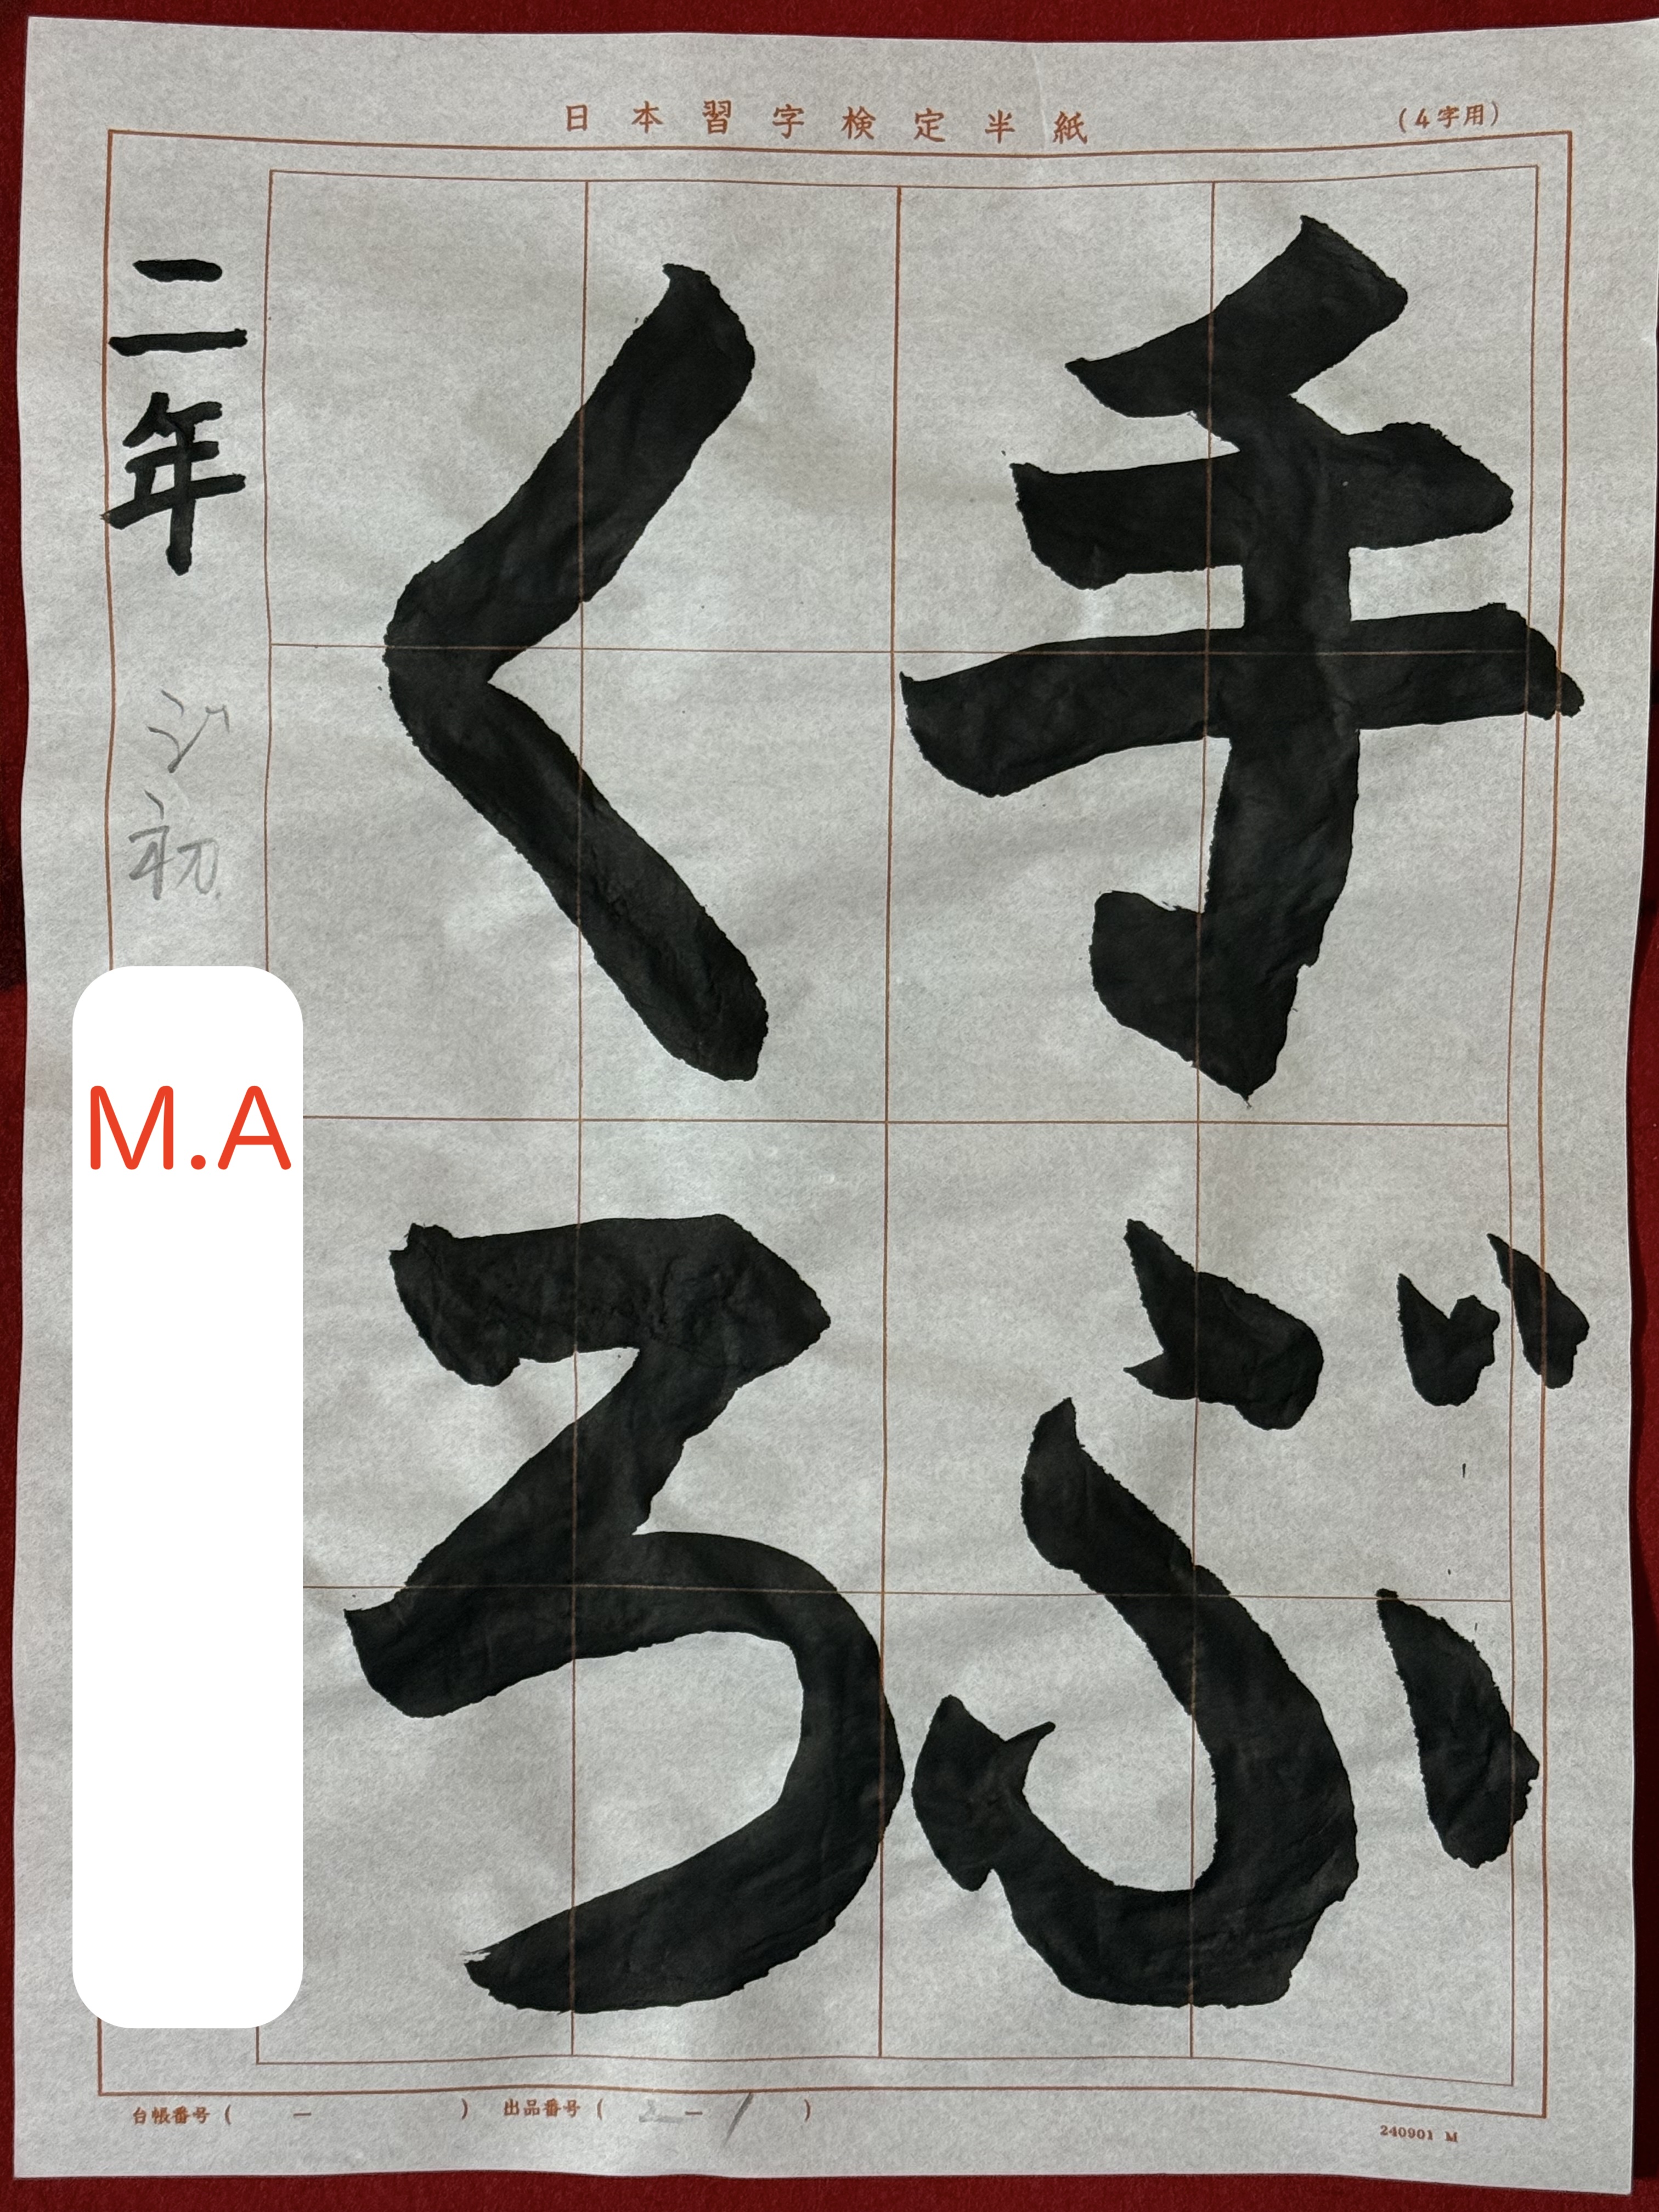 日本習字検定半紙
(4字用)
手ぶ
くろ
二年
ジ初
M.A
台帳番号( — ) 出品番号( 2—1 )
240901 M